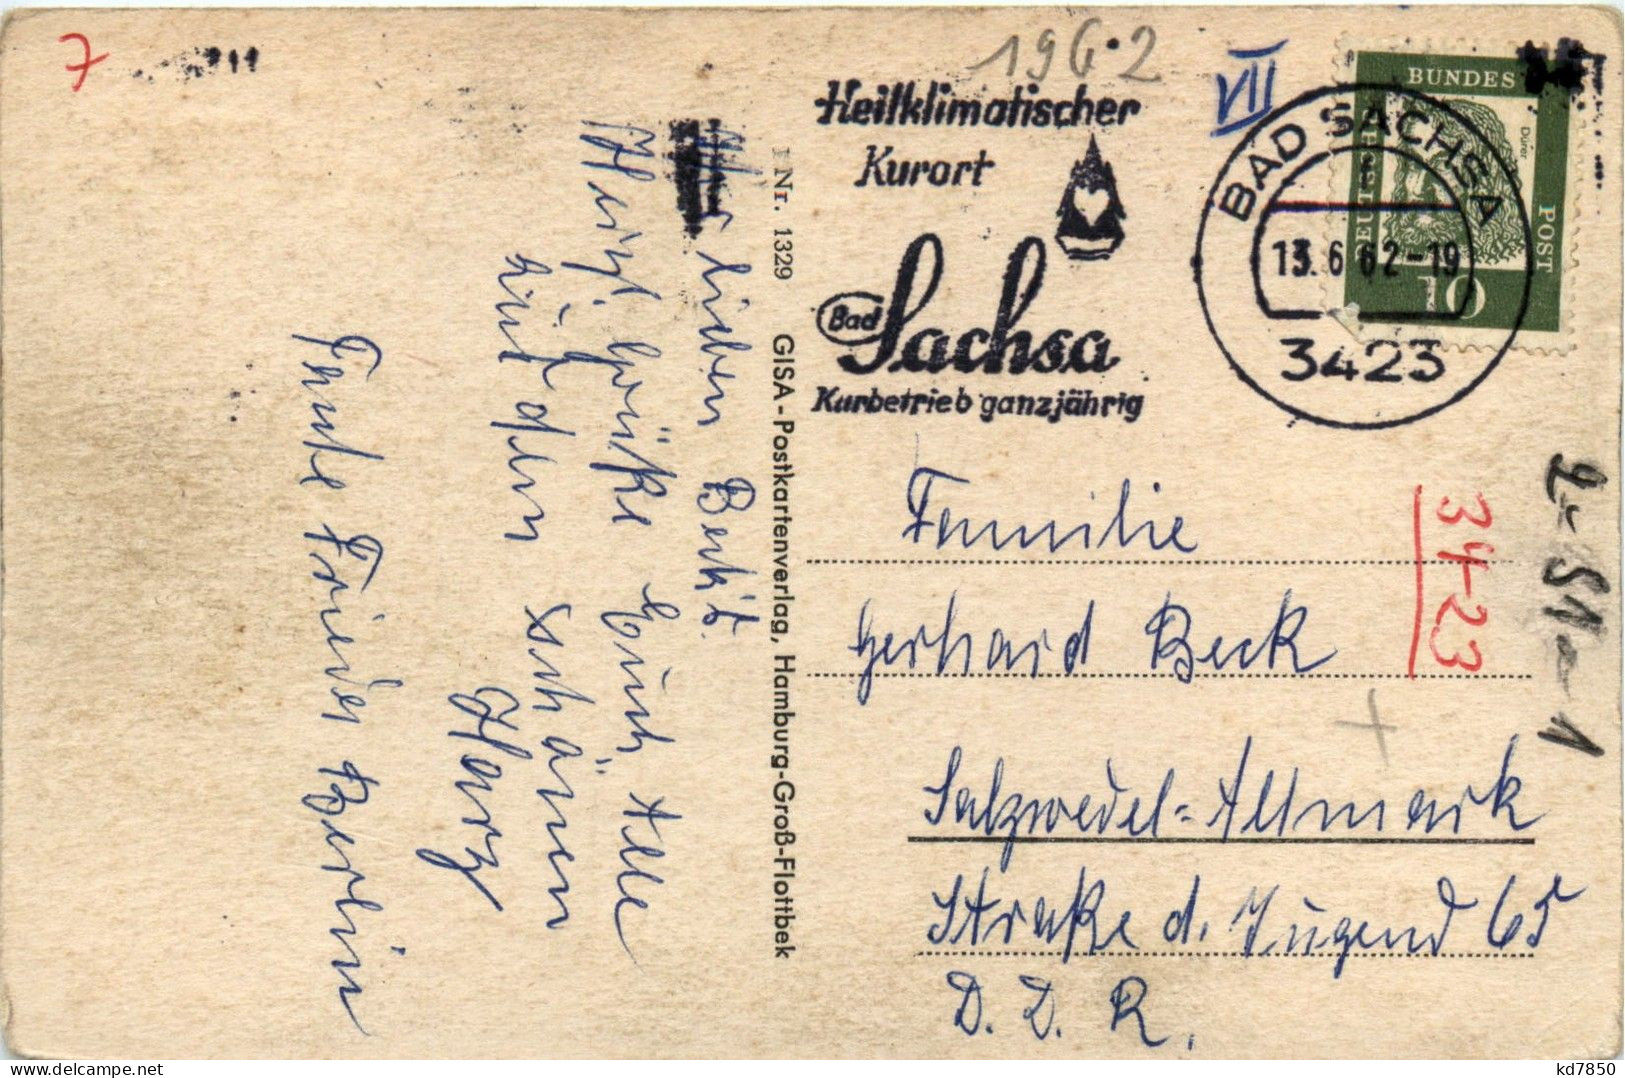 7
196.2
VII
Heilklimatischer
Kurort
Bad Sachsa
Kurbetrieb ganzjährig
BAD SACHSA
13.6.62-19
3423
DEUTSCHE BUNDESPOST
Dürer
10
lieben Beck's.
Herzl. Grüße Euch Alle
aus dem schönen
Harz
Tante Frieda Berlin
Nr. 1329 GISA-Postkartenverlag, Hamburg-Groß-Flottbek
Familie
Gerhard Beck
Salzwedel-Altmark
Straße d. Jugend 65
D. D. R.
34-23
kd7850